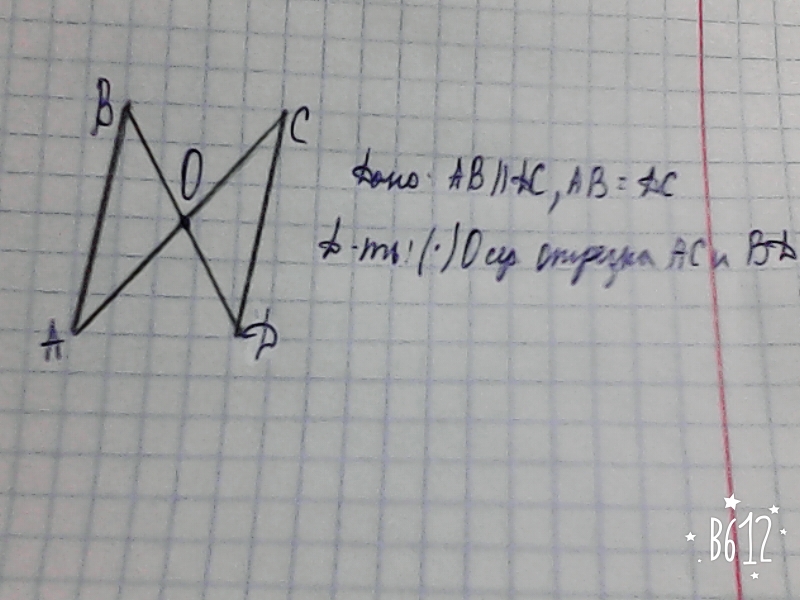 B
C
O
Дано: AB || DC, AB = DC
Д-ть: (·) O сер. отрезка AC и BD
A
D
B612